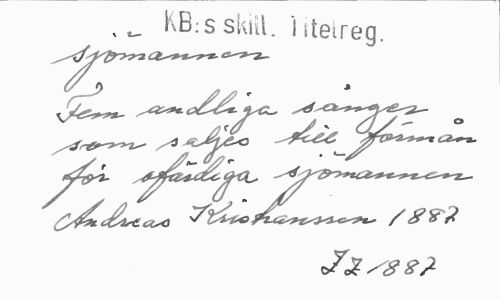 KB:s skill. Titelreg.
sjömannen
Fem andliga sånger
som saljes till förmån
för ofärdiga sjömannen
Andreas Kristianssen 1887
ZZ 1887